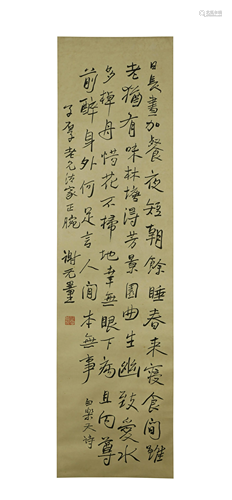 日長晝加餐夜短朝餘睡春來寢食間雖
老猶有味林塘得芳景園曲生幽致愛水
多棹舟惜花不掃地幸無眼下病且向尊
前醉身外何足言人間本無事 白樂天詩
子厚老兄法家正腕 謝无量